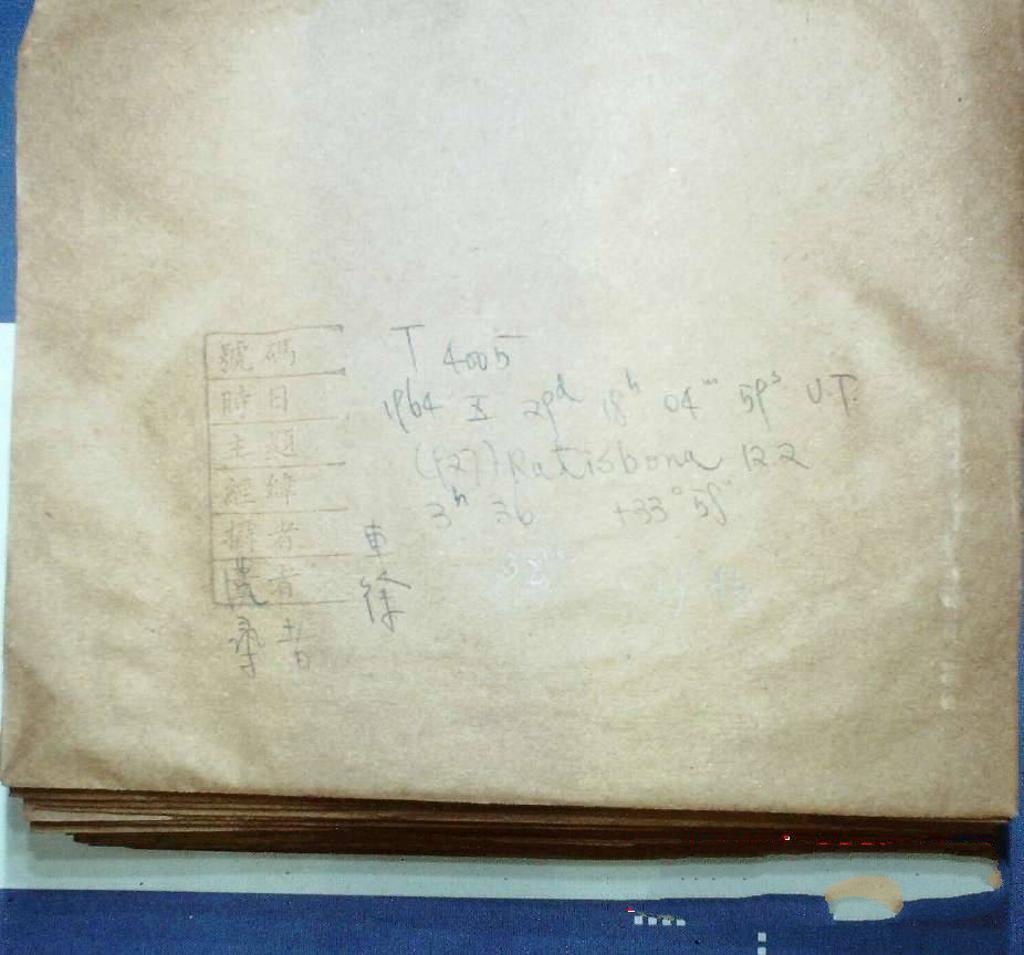 號碼 T 4005
時日 1964 X 29d 18h 04m 59s U.T.
主題 (927) Ratisbona 12.2
經緯 3h 36 +33° 59'
攝者 車
者 徐
录者